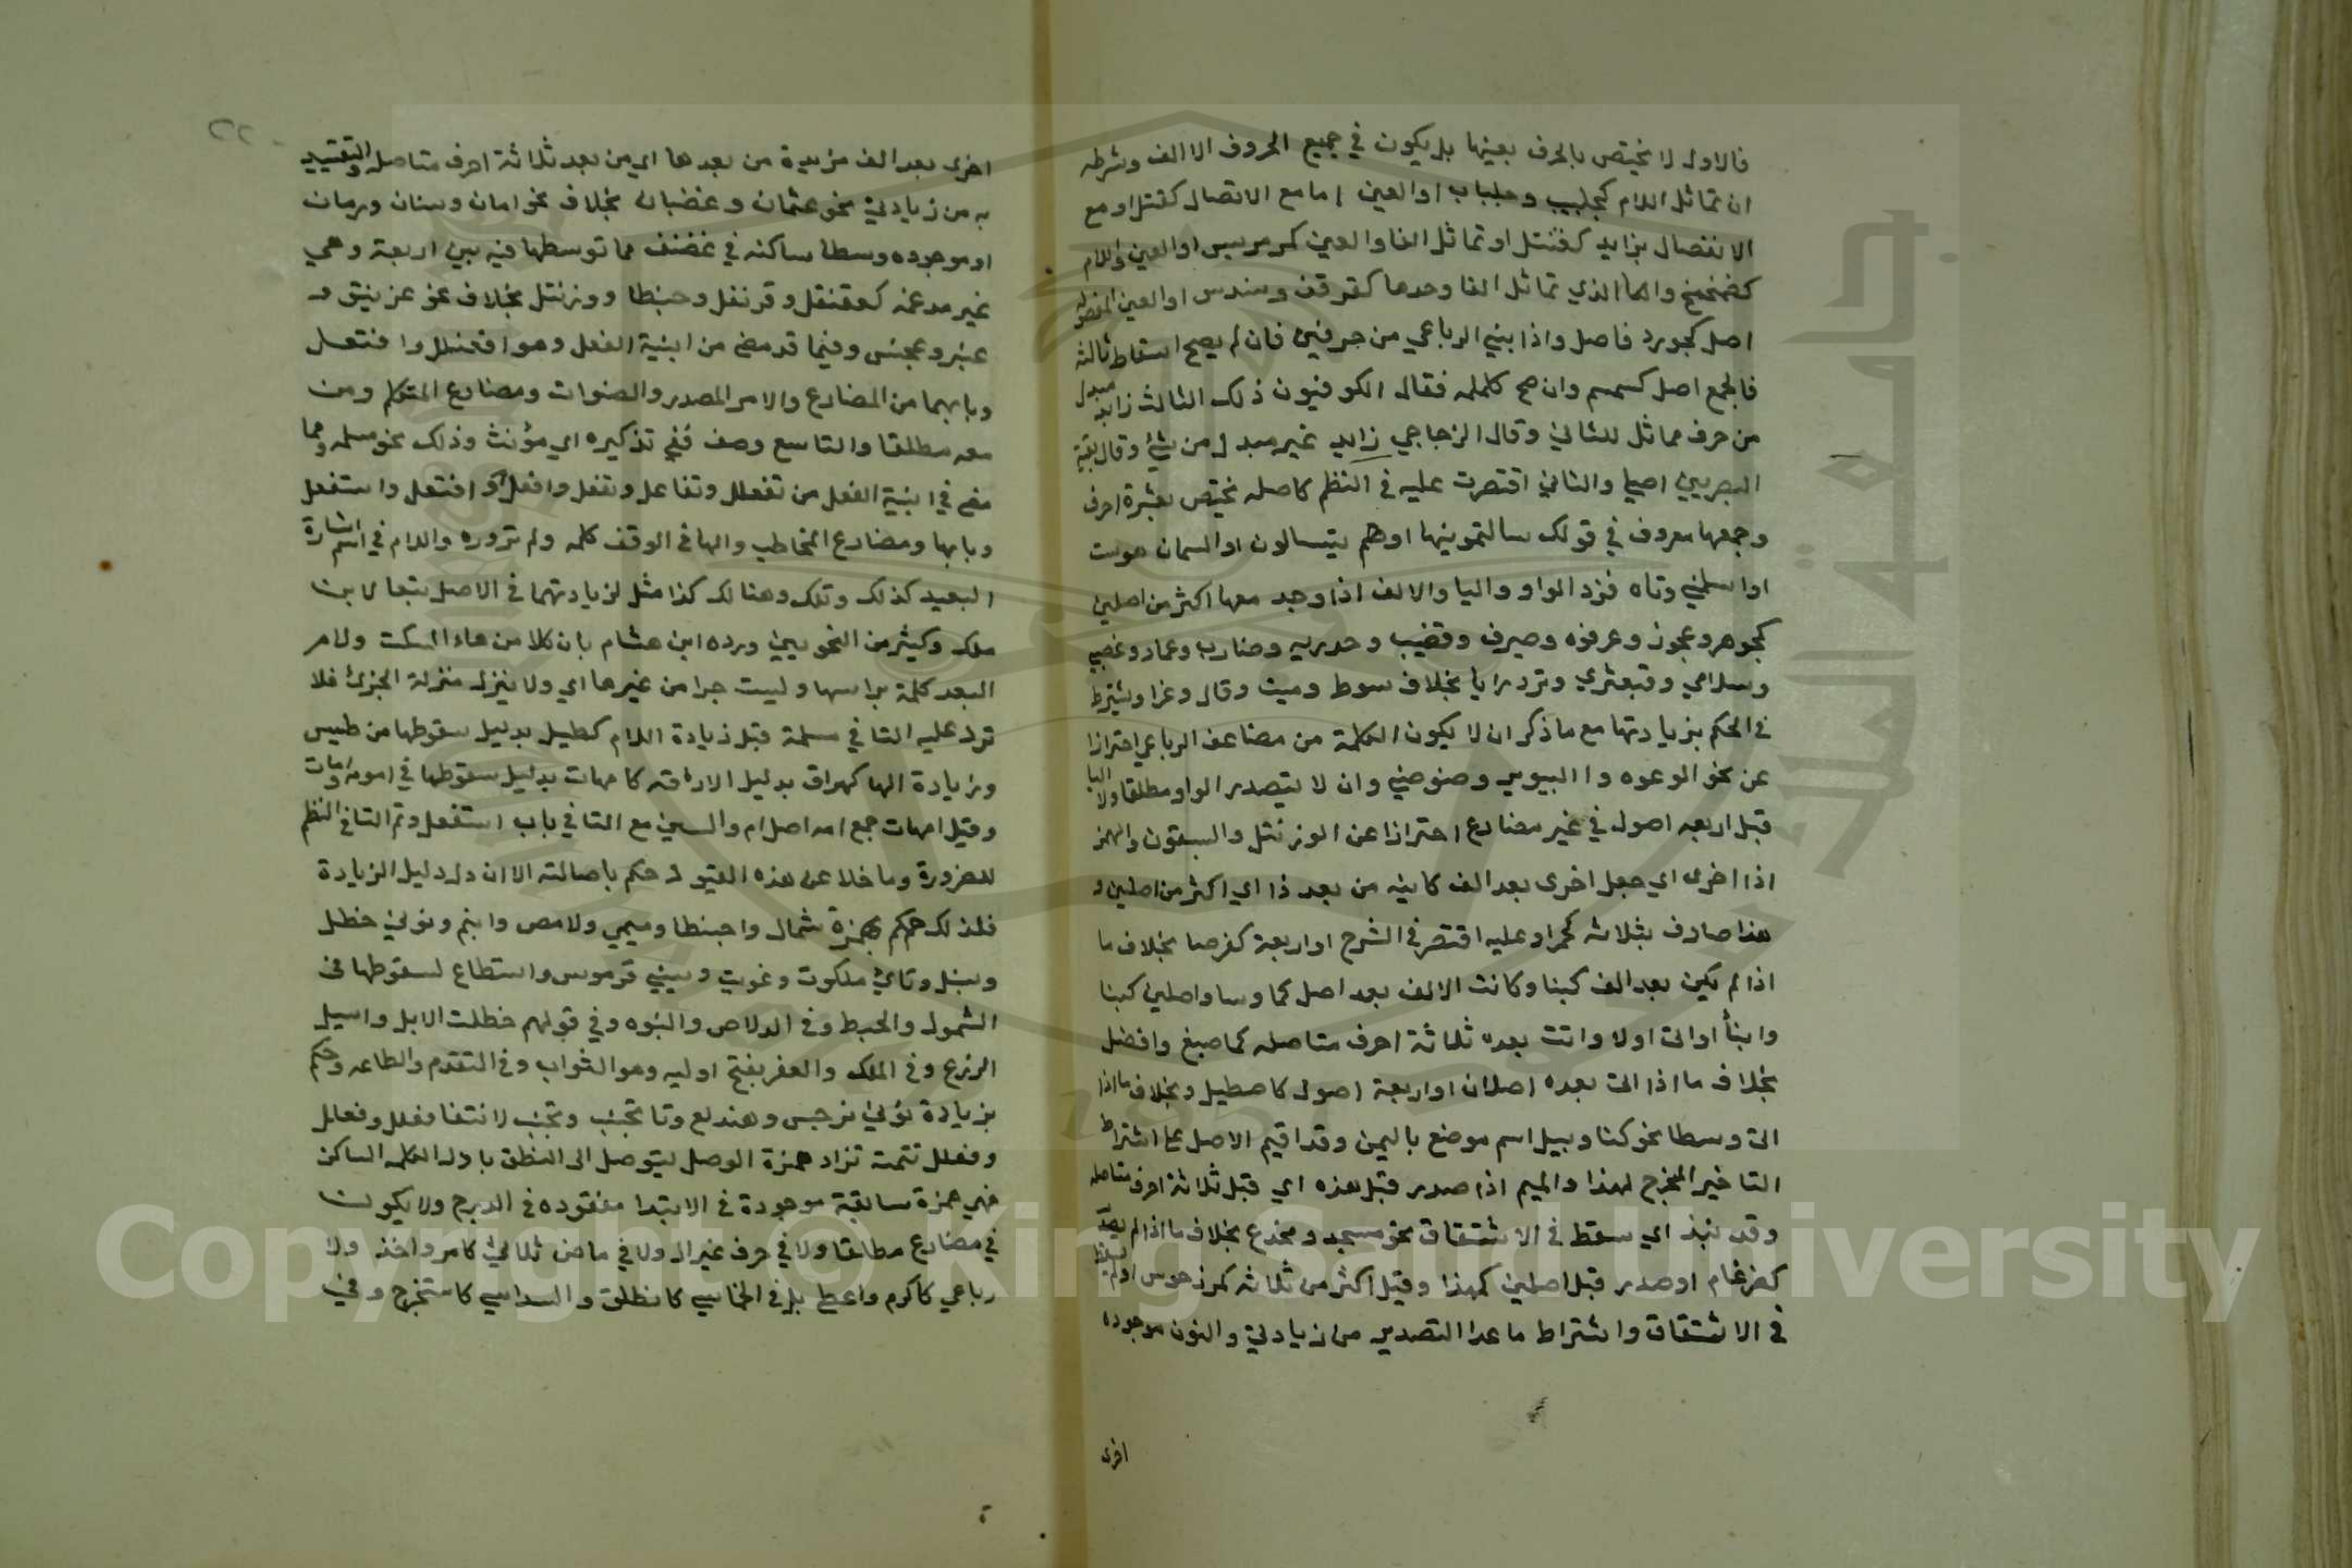 فالاول لا يختص بالحرف بعينها بل يكون في جميع الحروف الا الف وشرطه
ان تماثل اللام كجلبيب وجلباب او العين اما مع الاتصال كقتل او مع
الانفصال بزايد كعقنقل او تماثل الفا والعين كمرمريس او العين واللام
كصمحمح واما الذي تماثل الفا وحدها كقرقف وسندس او العين المفصول
اصل كجورد فاصل واذا بني الرباعي من حرفين فان لم يصح اسقاط ثالثه
فالجمع اصل كسمسم وان صح كلملم فقال الكوفيون ذلك الثالث زايد مبدل
من حرف مماثل للثاني وقال الزجاجي زايد غير مبدل من شيء وقال بقية
البصريين اصلي والثاني اقتصرت عليه في النظم كاصله يختص بعشرة احرف
وجمعها معروف في قولك سالتمونيها او هم يتسالون او السمان هويت
او اسلمني وتاه فزد الواو واليا والالف اذا وجد معها اكثر من اصلين
كجوهر وعجوز وعرقوه وصيرف وقضيب وحدريه وضارب وعماد وغضبي
وسلامي وقبعثري وترد رايا بخلاف سوط وميت وقال وغزا ويشترط
في الحكم بزيادتها مع ما ذكر ان لا يكون الكلمة من مضاعف الرباعي احترازا
عن نحو الوعوه واليويو وضوضي وان لا يتصدر الواو مطلقا ولا اليا
قبل اربعه اصول في غير مضارع احترازا عن الورنتل واليستعور والهمز
اذا اخرى اي جعل اخرى بعد الف كاينه من بعد ذا اي اكثر من اصلين و
هذا صادف بثلاثه كحمرا وعليه اقتصر في الشرح او اربعة كقرفصا بخلاف ما
اذا لم يكن بعد الف كبنا وكانت الالف بعد اصل كما وسا واصلين كبنا
وابنأ او اتى اولا واتت بعده ثلاثة احرف متاصله كاصبغ وافضل
بخلاف ما اذا اتى بعده اصلان او اربعة اصول كاصطبل وبخلاف ما اذا
اتى وسطا نحو كنا وبيل اسم موضع باليمن وقد اقيم الاصل على اشتراط
التاخير المخرج لهذا والميم اذا صدر قبل هذه اي قبل ثلاثة احرف متاصله
وقد نبذ اي سقط في الاشتقاق نحو مسجد ومخدع بخلاف ما اذا لم يصدر
كضرغام او صدر قبل اصلين كمهذا وقيل اكثر من ثلاثه كمرزجوش او لم يسقط
في الاشتقاق واشتراط ما عدا التصدير من زيادتي والنون موجوده
اخرى
اخرى بعد الف مزيدة من بعدها اي من بعد ثلاثة احرف متاصله والتقييد
به من زيادتي نحو عثمان وغضبان بخلاف نحو امان وسنان ورمان
او موجوده وسطا ساكنه في غضنفر مما توسطها فيه بين اربعة وهي
غير مدغمه كعقنقل وقرنفل وحبنطا وورنتل بخلاف نحو غرنيق و
عنبر وعجنس وفيما قد مضى من ابنية الفعل وهو افعنلل وانفعل
وبابهما من المضارع والامر المصدر والصفات ومضارع المتكلم ومن
معه مطلقا والتاسع وصف في تذكيره اي مؤنث وذلك نحو مسلمه ومما
مضى في ابنية الفعل من تفعلل وتفاعل وتفعل وافتعل واستفعل
وبابها ومضارع المخاطب والها في الوقف كلمه ولم تروره واللام في اسم اشارة
البعيد كذلك وتلك وهنالك كذا مثل لزيادتهما في الاصل تبعا لابن
ملك وكثير من النحويين ورده ابن هشام بان كلا من هاء السكت ولام
البعد كلمة براسها وليست جزا من غيرها اي ولا ينزل منزلة الجزئ فلا
ترد عليه التا في مسلمة قبل زيادة اللام كطيسل بدليل سقوطها من طيس
وزيادة الها كهراق بدليل الاراقه كامهات بدليل سقوطها في امومه وامات
وقيل امهات جمع امه اصل ام والسين مع التا في باب استفعل وتم التا في النظم
للضرورة وما خلا عن هذه القيود حكم باصالته الا ان دل دليل الزيادة
فلذلك حكم بهمزة شمال واحبنطا وميمي دلامص وابنم ونوني حنظل
وسنبل وتائي ملكوت وعفريت وسيني قدموس واستطاع لسقوطها في
الشمول والحبط وفي الدلاص والبنوه وفي قولهم حظلت الابل واسبل
الزرع وفي الملك والعفر بفتح اوليه وهو التراب وفي التقدم والطاعه وحكم
بزيادة نوني نرجس وهندلع وتا تخيب وتخيب لانتفا فعلل وفعلل
وفعلل تتمت تزاد همزة الوصل ليتوصل الى النطق باول الكلمه الساكن
فهي همزة سابقة موجودة في الابتدا مفقوده في الدرج ولا يكون
في مضارع مطلقا ولا في حرف غير ال ولا في ماض ثلاثي كامر واخذ ولا
رباعي كاكرم واعطى بل في الخماسي كانطلق والسداسي كاستخرج وفي